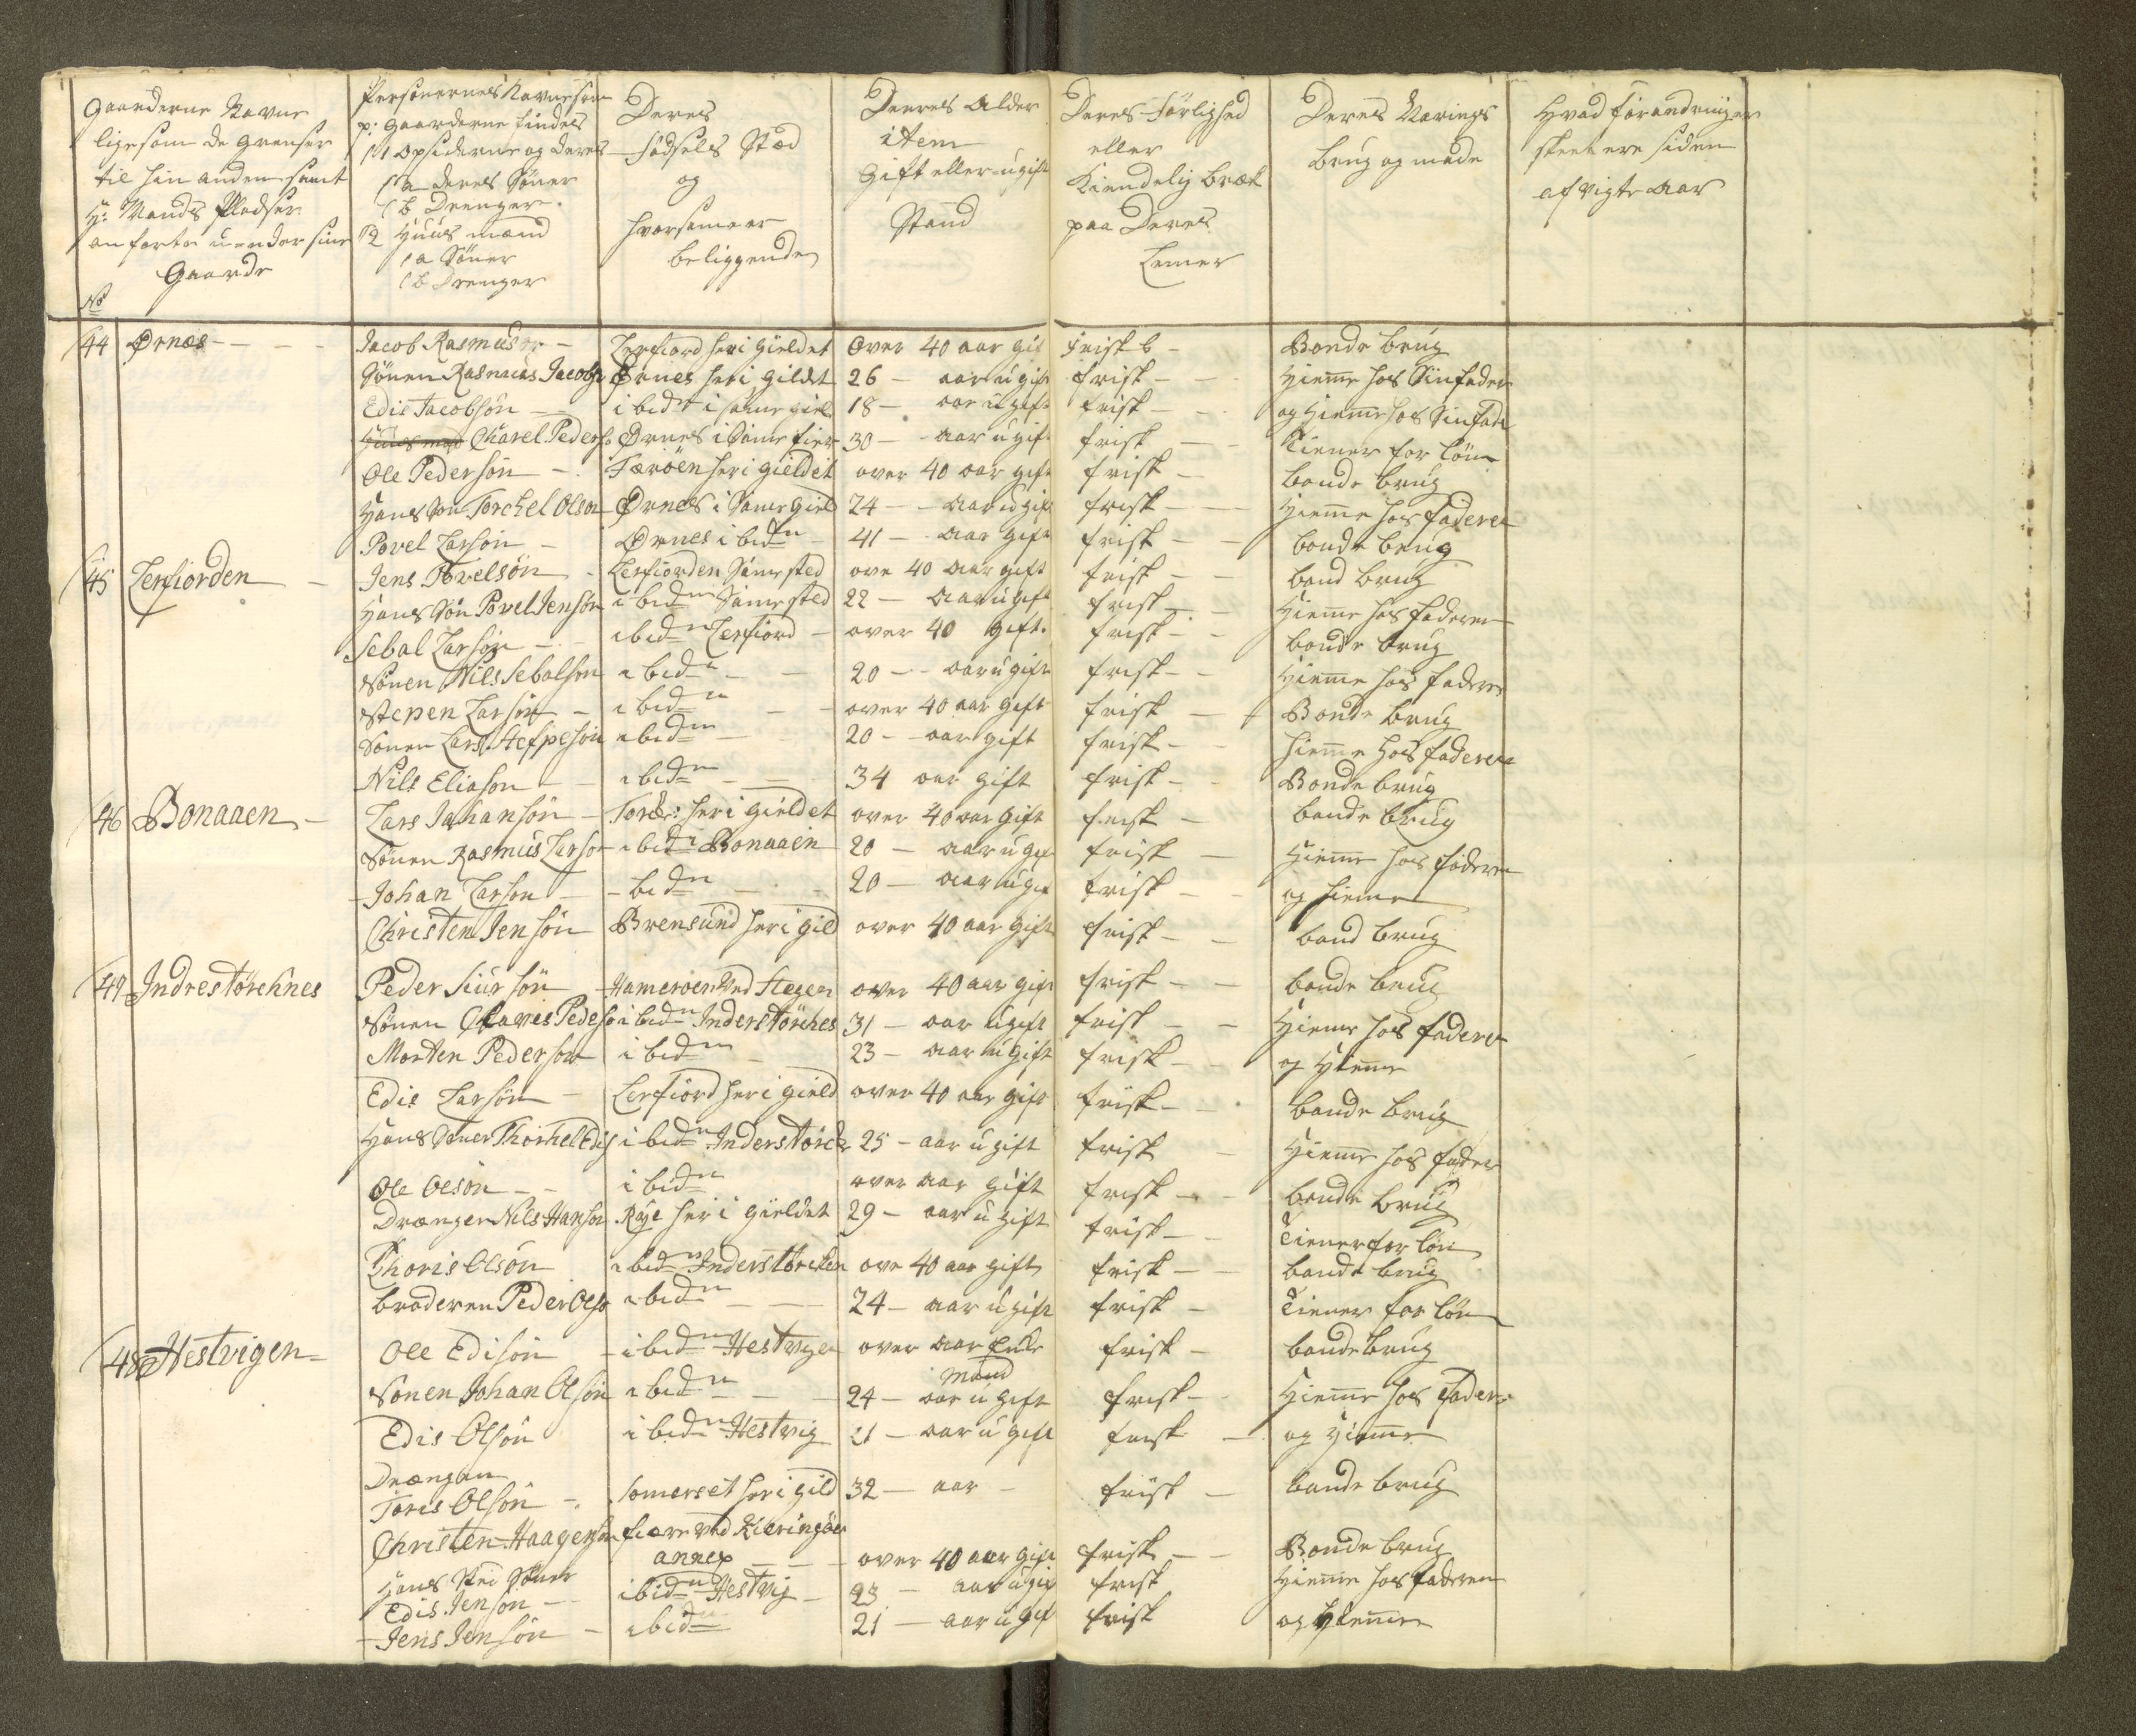 Gaarderne Navne
ligesom de grenser
til hin anden samt
H: Mands Pladser
anførte under sine
Gaarde
No
Personernes Navne som
p: gaarderne findes
1 Opsiderne og deres
a deres Söner
b Drenger
2 Huus mænd
a Söner
b Drenger
Deres
födsels Stæd
og
hvor samme er
beliggende
Deeres Alder
item
Gift eller ugift
Stand
Deres Förlighed
eller
Kiendelig bræk
paa Deres
Lemer
Deres Nærings
brug og made
Hvad forandringer
skeet ere siden
afvigte aar
44 Ørnæs - - - Jacob Rasmuss - Lerfiord her i gieldet Over 40 aar gif frisk - Bonde brug
Sönen Rasmus Jacobs Ørnes her i gildet 26 - aar ugift frisk - - Hieme hos Sin fader
Edis Jacobsön - i bidn i same giel 18 - aar ugift frisk - - og Hieme hos Sin fade
Charel Peders Ørnes i Same fier 30 - aar ugift frisk - - Tiener for lön
Ole Pedersön - Færöen her i gieldet over 40 aar gift frisk - bonde brug
Hans Sön Torchel Olson Ørnes i Same gield 24 - aar ugift frisk - - Hieme hos faderen
Povel Larsön - Ørnes i bidn 41 - aar gift frisk - - bonde brug
45 Lerfiorden - Jens Povelsön - Lerfiorden Same sted ove 40 aar gift frisk - - bond brug
Hans Sön Povel Jensön i bidn Same sted 22 - aar ugift frisk - - Hieme hos faderen
Sebal Larsön - - i bidn Lerfiord - over 40 gift. frisk - - bonde brug
Sönen Nils Sebalsen i bidn - - 20 - aar ugift frisk - - Hieme hos fadere
Stepen Larsön - i bidn - - over 40 aar gift frisk - - Bonde brug
Sönen Lars Stefpesön i bidn - 20 - aar gift frisk - - hieme hos faderen
Nils Eliason - - i bidn - - 34 aar gift frisk - - Bonde brug
46 Bonaaen - Lars Johansön - her i gieldet over 40 aar gift frisk - bonde brug
Sönen Rasmus Larsö i bidn Bonaaen 20 - aar ugif frisk - Hieme hos faderen
- Johan Larson - - bidn - - 20 - aar ugif frisk - - og hieme
Christen Jensön Brensund her i gild over 40 aar gift frisk - - bond brug
47 Indrestörchnes Peder Siursön - Hameröen ved Stegen over 40 aar gift frisk - - bonde brug
Sönen Pedes i bidn Inderstörches 31 - aar ugift frisk - - Hieme hos faderen
Morten Pederson i bidn - 23 - aar ugift frisk - - og Hieme
Edis Larsön - Lerfiord her i gield over 40 aar gift frisk - - bonde brug
Hans Söner Thorchel Edis i bidn Inderstörch 25 - aar ugift frisk - Hieme hos fader
Ole Olsön - - i bidn over aar gift frisk - - bonde brug
Drængen Nils Hanson Röje her i gieldet 29 - aar ugift frisk - - Tiener for lön
Thoris Olsön i bidn Inderstörchen ove 40 aar gift frisk - - bonde brug
broderen Peder Ols i bidn - - 24 - aar ugift frisk - Tiener for lön
48 Hestvigen - Ole Edisön - i bidn Hestvigen over aar Enke frisk - bonde brug
Mand
Sönen Johan Olsön i bidn - - 24 - aar ugift frisk - Hieme hos fadere
Edis Olsön i bidn Hestvig 21 - aar ugift frisk - og Hieme
Drængen
Toris Olsön - Somerset her i gild 32 - aar - frisk - bonde brug
Christen Haagensön fiære ved Kieringöen
annex - - - over 40 aar gift frisk - - Bonde brug
Hans Söner
Edis Jenson - - i bidn Hestvig - 23 - aar ugif frisk Hieme hos faderen
- Jens Jensön - i bidn 21 - aar ugif frisk og Hieme